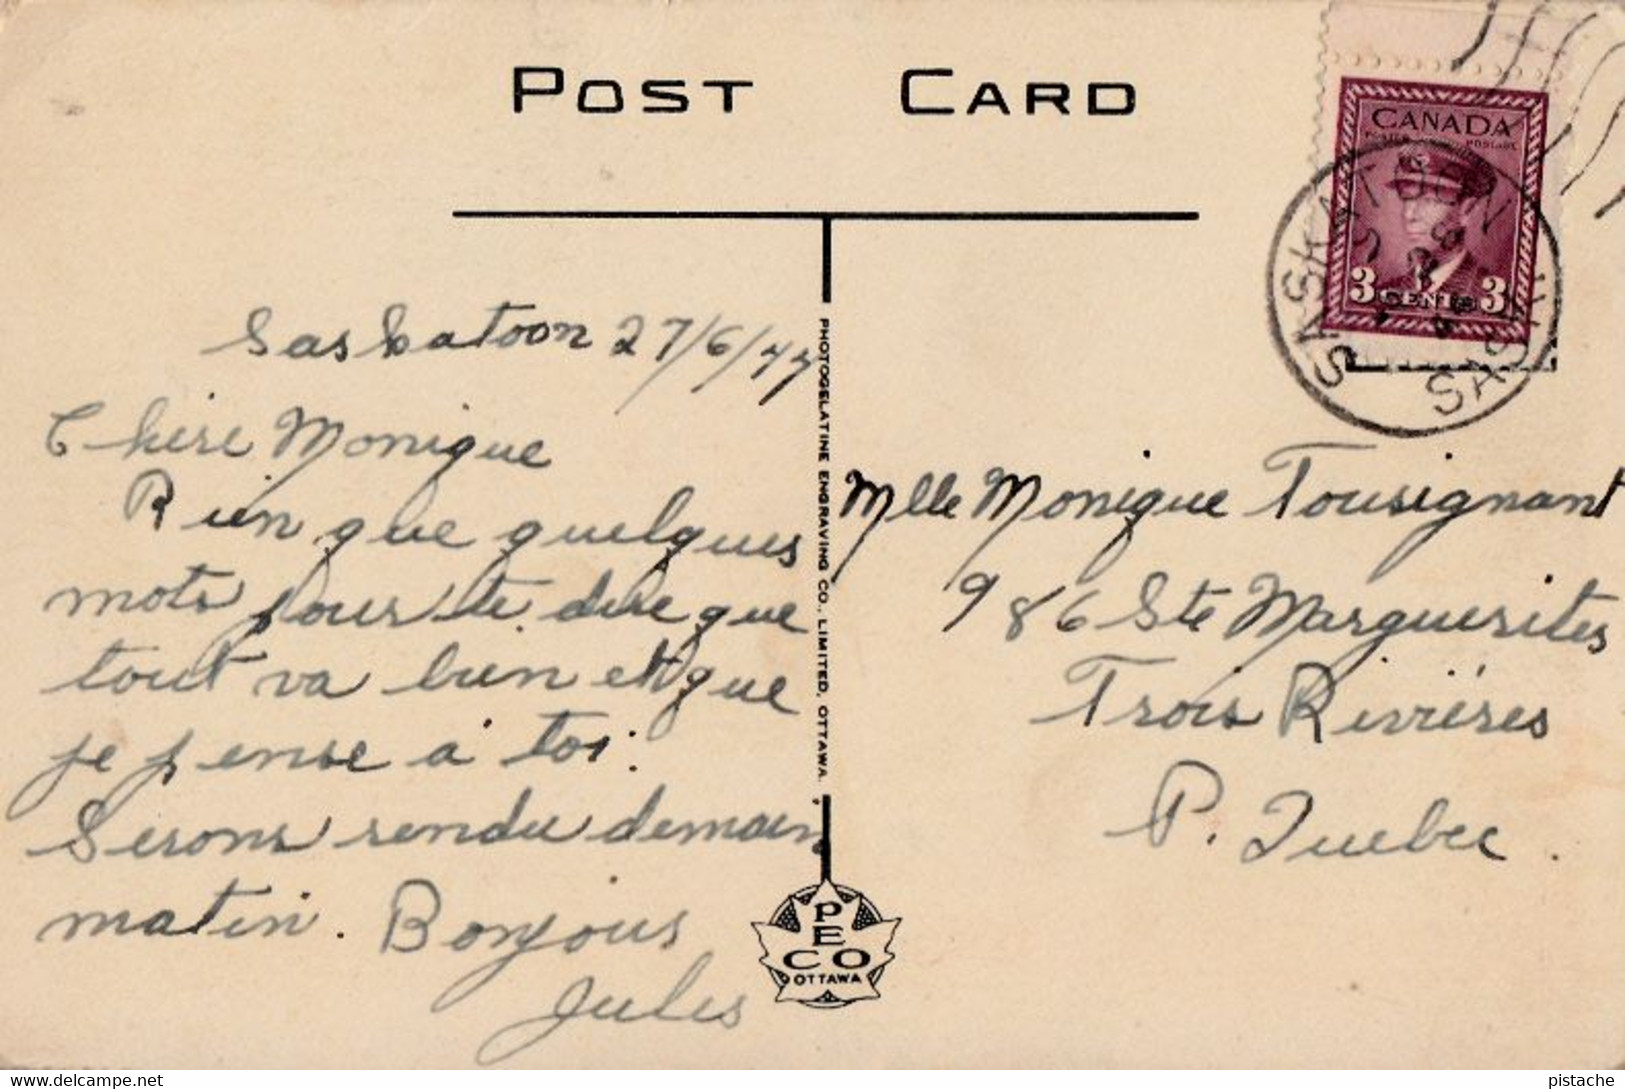 POST CARD
CANADA
POSTES POSTAGE
3 CENTS 3
SASKATOON
SASK
Saskatoon 27/6/47
Chère Monique
Rien que quelques
mots pour te dire que
tout va bien et que
je pense à toi.
Serons rendu demain
matin. Bonjour
Jules
PHOTOGELATINE ENGRAVING CO., LIMITED, OTTAWA.
PECO
OTTAWA
Mlle Monique Tousignant
986 Ste Marguerites
Trois Rivières
P. Quebec.
delcampe.net
pistache